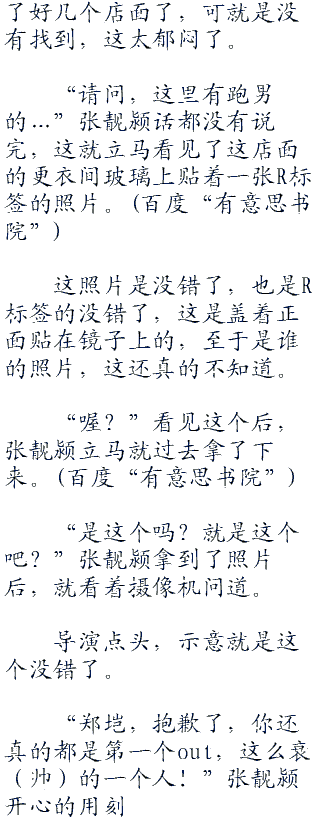 了好几个店面了，可就是没
有找到，这太郁闷了。
“请问，这里有跑男
的…”张靓颖话都没有说
完，这就立马看见了这店面
的更衣间玻璃上贴着一张R标
签的照片。(百度“有意思书
院”)
这照片是没错了，也是R
标签的没错了，这是盖着正
面贴在镜子上的，至于是谁
的照片，这还真的不知道。
“喔？”看见这个后，
张靓颖立马就过去拿了下
来。(百度“有意思书院”)
“是这个吗？就是这个
吧？”张靓颖拿到了照片
后，就看着摄像机问道。
导演点头，示意就是这
个没错了。
“郑垲，抱歉了，你还
真的都是第一个out，这么衰
（帅）的一个人！”张靓颖
开心的用刻